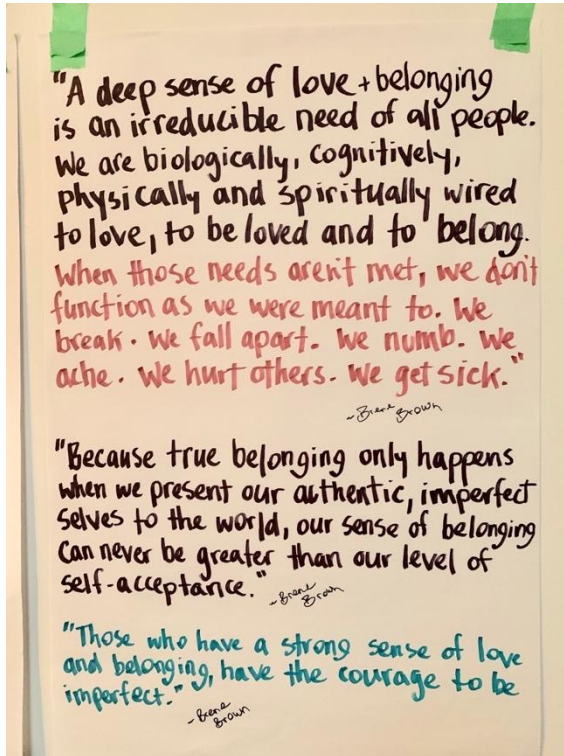 "A deep sense of love + belonging
is an irreducible need of all people.
We are biologically, cognitively,
physically and spiritually wired
to love, to be loved and to belong.
When those needs aren't met, we don't
function as we were meant to. We
break. We fall apart. We numb. We
ache. We hurt others. We get sick."
~Brene Brown
"Because true belonging only happens
when we present our authentic, imperfect
selves to the world, our sense of belonging
can never be greater than our level of
self-acceptance."
~Brene
Brown
"Those who have a strong sense of love
and belonging, have the courage to be
imperfect."
~Brene
Brown